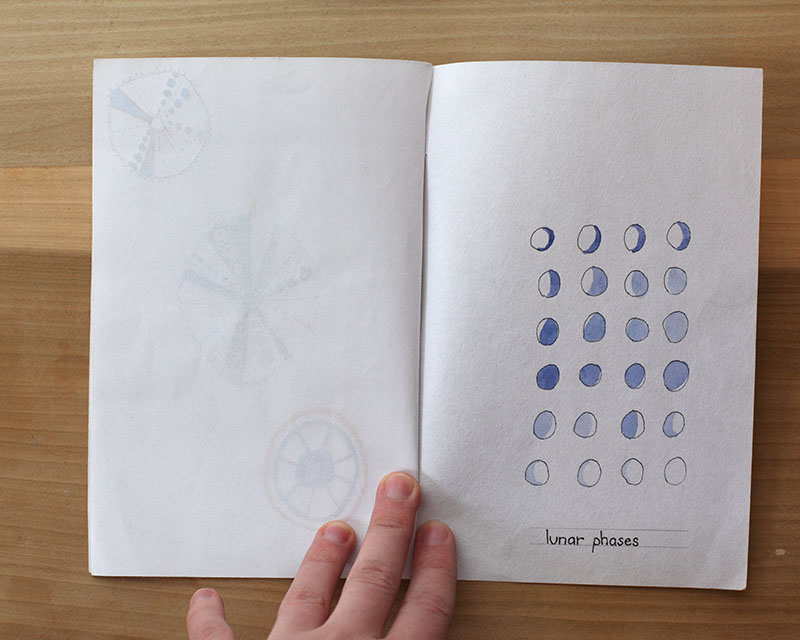 lunar phases